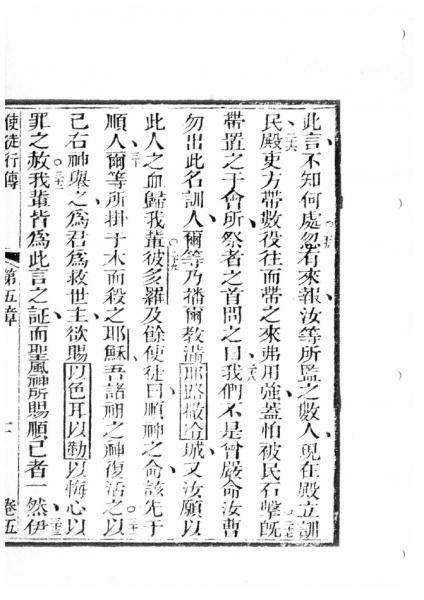 此言不知何處忽有來報汝等所監之數人現在殿立訓
民殿吏方帶數役往而帶之來弗用強蓋怕被民石擊旣
帶置之于會所祭者之首問之曰我們不是曾嚴命汝曹
勿出此名訓人爾等乃播爾教滿耶路撒冷城又汝願以
此人之血歸我輩彼多羅及餘使徒曰順神之命該先于
順人爾等所掛于木而殺之耶穌吾諸祖之神復活之以
己右神舉之為君為救世主欲賜以色耳以勒以悔心以
罪之赦我輩皆為此言之証而聖風神所賜順己者一然伊
使徒行傳 第五章 卷五